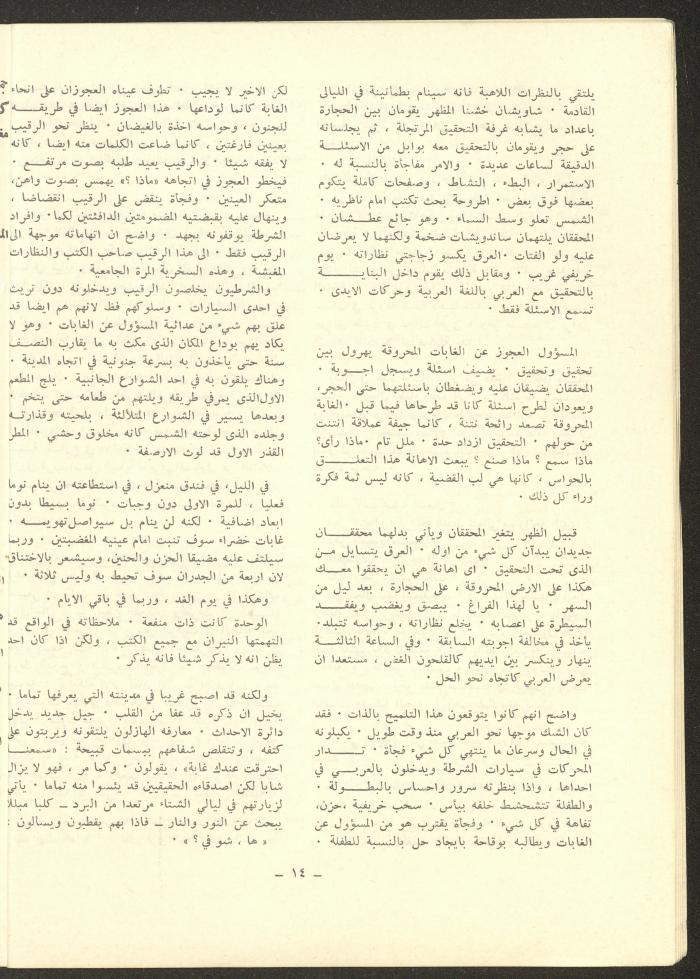 يلتقي بالنظرات اللاهبة فانه سينام بطمأنينة في الليالى
القادمة ٠ شاويشان خشنا المظهر يقومان بين الحجارة
باعداد ما يشابه غرفة التحقيق المرتجلة ، ثم يجلسانه
على حجر ويقومان بالتحقيق معه بوابل من الاسئلة
الدقيقة لساعات عديدة ٠ والامر مفاجأة بالنسبة له ٠
الاستمرار ، البطء ، النشاط ، وصفحات كاملة يتكوم
بعضها فوق بعض ٠ اطروحة بحث تكتب امام ناظريه ٠
الشمس تعلو وسط السماء ٠ وهو جائع عطشان ٠
المحققان يلتهمان ساندويشات ضخمة ولكنهما لا يعرضان
عليه ولو الفتات ٠العرق يكسو زجاجتي نظاراته ٠ يوم
خريفي غريب ٠ ومقابل ذلك يقوم داخل البناية
بالتحقيق مع العربي باللغة العربية وحركات الايدى ٠
تسمع الاسئلة فقط ٠
المسؤول العجوز عن الغابات المحروقة يهرول بين
تحقيق وتحقيق ٠ يضيف اسئلة ويسجل اجوبة ٠
المحققان يضيقان عليه ويضغطان باسئلتهما حتى الحجر،
ويعودان لطرح اسئلة كانا قد طرحاها فيما قبل ٠الغابة
المحروقة تصعد رائحة نتنة ، كانما جيفة عملاقة انتنت
من حولهم ٠ التحقيق ازداد حدة ٠ ملل تام ٠ماذا رأى؟
ماذا سمع ؟ ماذا صنع ؟ يبعث الاهانة هذا التعلق
بالحواس ، كانها هي لب القضية ، كانه ليس ثمة فكرة
وراء كل ذلك ٠
قبيل الظهر يتغير المحققان ويأتي بدلهما محققان
جديدان يبدآن كل شيء من اوله ٠ العرق يتسايل من
الذى تحت التحقيق ٠ اى اهانة هي ان يحققوا معك
هكذا على الارض المحروقة ، على الحجارة ، بعد ليل من
السهر ٠ يا لهذا الفراغ ٠ يبصق ويغضب ويفقد
السيطرة على اعصابه ٠ يخلع نظاراته ، وحواسه تتبلد٠
يأخذ في مخالفة اجوبته السابقة ٠ وفي الساعة الثالثة
ينهار وينكسر بين ايديهم كالقلحون الغض ، مستعدا ان
يعرض العربي كاتجاه نحو الحل ٠
واضح انهم كانوا يتوقعون هذا التلميح بالذات ٠ فقد
كان الشك موجها نحو العربي منذ وقت طويل ٠ يكبلونه
في الحال وسرعان ما ينتهي كل شيء فجأة ٠ تدار
المحركات في سيارات الشرطة ويدخلون بالعربي في
احداها ، واذا بنظرته سرور واحساس بالبطولة ٠
والطفلة تتشحشط خلفه بيأس ٠ سحب خريفية ،حزن،
تفاهة في كل شيء ٠ وفجأة يقترب هو من المسؤول عن
الغابات ويطالبه بوقاحة بايجاد حل بالنسبة للطفلة ٠
لكن الاخير لا يجيب ٠ تطوف عيناه العجوزان على انحاء
الغابة كانما لوداعها ٠ هذا العجوز ايضا في طريقه
للجنون ، وحواسه اخذة بالغيضان ٠ ينظر نحو الرقيب
بعينين فارغتين ، كانما ضاعت الكلمات منه ايضا ، كانه
لا يفقه شيئا ٠ والرقيب يعيد طلبه بصوت مرتفع ٠
فيخطو العجوز في اتجاهه «ماذا ؟» يهمس بصوت واهن،
متعكر العينين ٠ وفجأة ينقض على الرقيب انقضاضا ،
وينهال عليه بقبضتيه المضمومتين الدافئتين لكما٠ وافراد
الشرطة يوقفونه بجهد ٠ واضح ان اتهاماته موجهة الى
الرقيب فقط ٠ الى هذا الرقيب صاحب الكتب والنظارات
المغبشة ، وهذه السخرية المرة الجامعية ٠
والشرطيون يخلصون الرقيب ويدخلونه دون تريث
في احدى السيارات ٠ وسلوكهم فظ لانهم هم ايضا قد
علق بهم شيء من عدائية المسؤول عن الغابات ٠ وهو لا
يكاد يهم بوداع المكان الذى مكث به ما يقارب النصف
سنة حتى يأخذون به بسرعة جنونية في اتجاه المدينة ٠
وهناك يلقون به في احد الشوارع الجانبية ٠ يلج المطعم
الاول الذى يمر في طريقه ويلتهم من طعامه حتى يتخم ٠
وبعدها يسير في الشوارع المتلألئة ، بلحيته وقذارته
وجلده الذى لوحته الشمس كانه مخلوق وحشي ٠ المطر
القذر الاول قد لوث الارصفة ٠
في الليل، في فندق منعزل ، في استطاعته ان ينام نوما
فعليا ، للمرة الاولى دون وجبات ٠ نوما بسيطا بدون
ابعاد اضافية ٠ لكنه لن ينام بل سيواصل تهويمه ٠
غابات خضراء سوف تنبت امام عينيه المغضبتين ٠ وربما
سيلتف عليه مضيقا الحزن والحنين، وسيشعر بالاختناق
لان اربعة من الجدران سوف تحيط به وليس ثلاثة ٠
وهكذا في يوم الغد ، وربما في باقي الايام ٠
الوحدة كانت ذات منفعة ٠ ملاحظاته في الواقع قد
التهمتها النيران مع جميع الكتب ، ولكن اذا كان احد
يظن انه لا يذكر شيئا فانه يذكر ٠
ولكنه قد اصبح غريبا في مدينته التي يعرفها تماما ٠
يخيل ان ذكره قد عفا من القلب ٠ جيل جديد يدخل
دائرة الاحداث ٠ معارفه الهازلون يلتقونه ويربتون على
كتفه ، وتتقلص شفاههم ببسمات قبيحة : «سمعنا
احترقت عندك غابة» ، يقولون ٠ وكما مر ، فهو لا يزال
شابا لكن اصدقاءه الحقيقيين قد يئسوا منه تماما ٠ يأتي
لزيارتهم في ليالي الشتاء مرتعدا من البرد ــ كلبا مبللا
يبحث عن النور والنار ــ فاذا بهم يقطبون ويسالون :
« ها ، شو في ؟» ٠
ــ ١٤ ــ